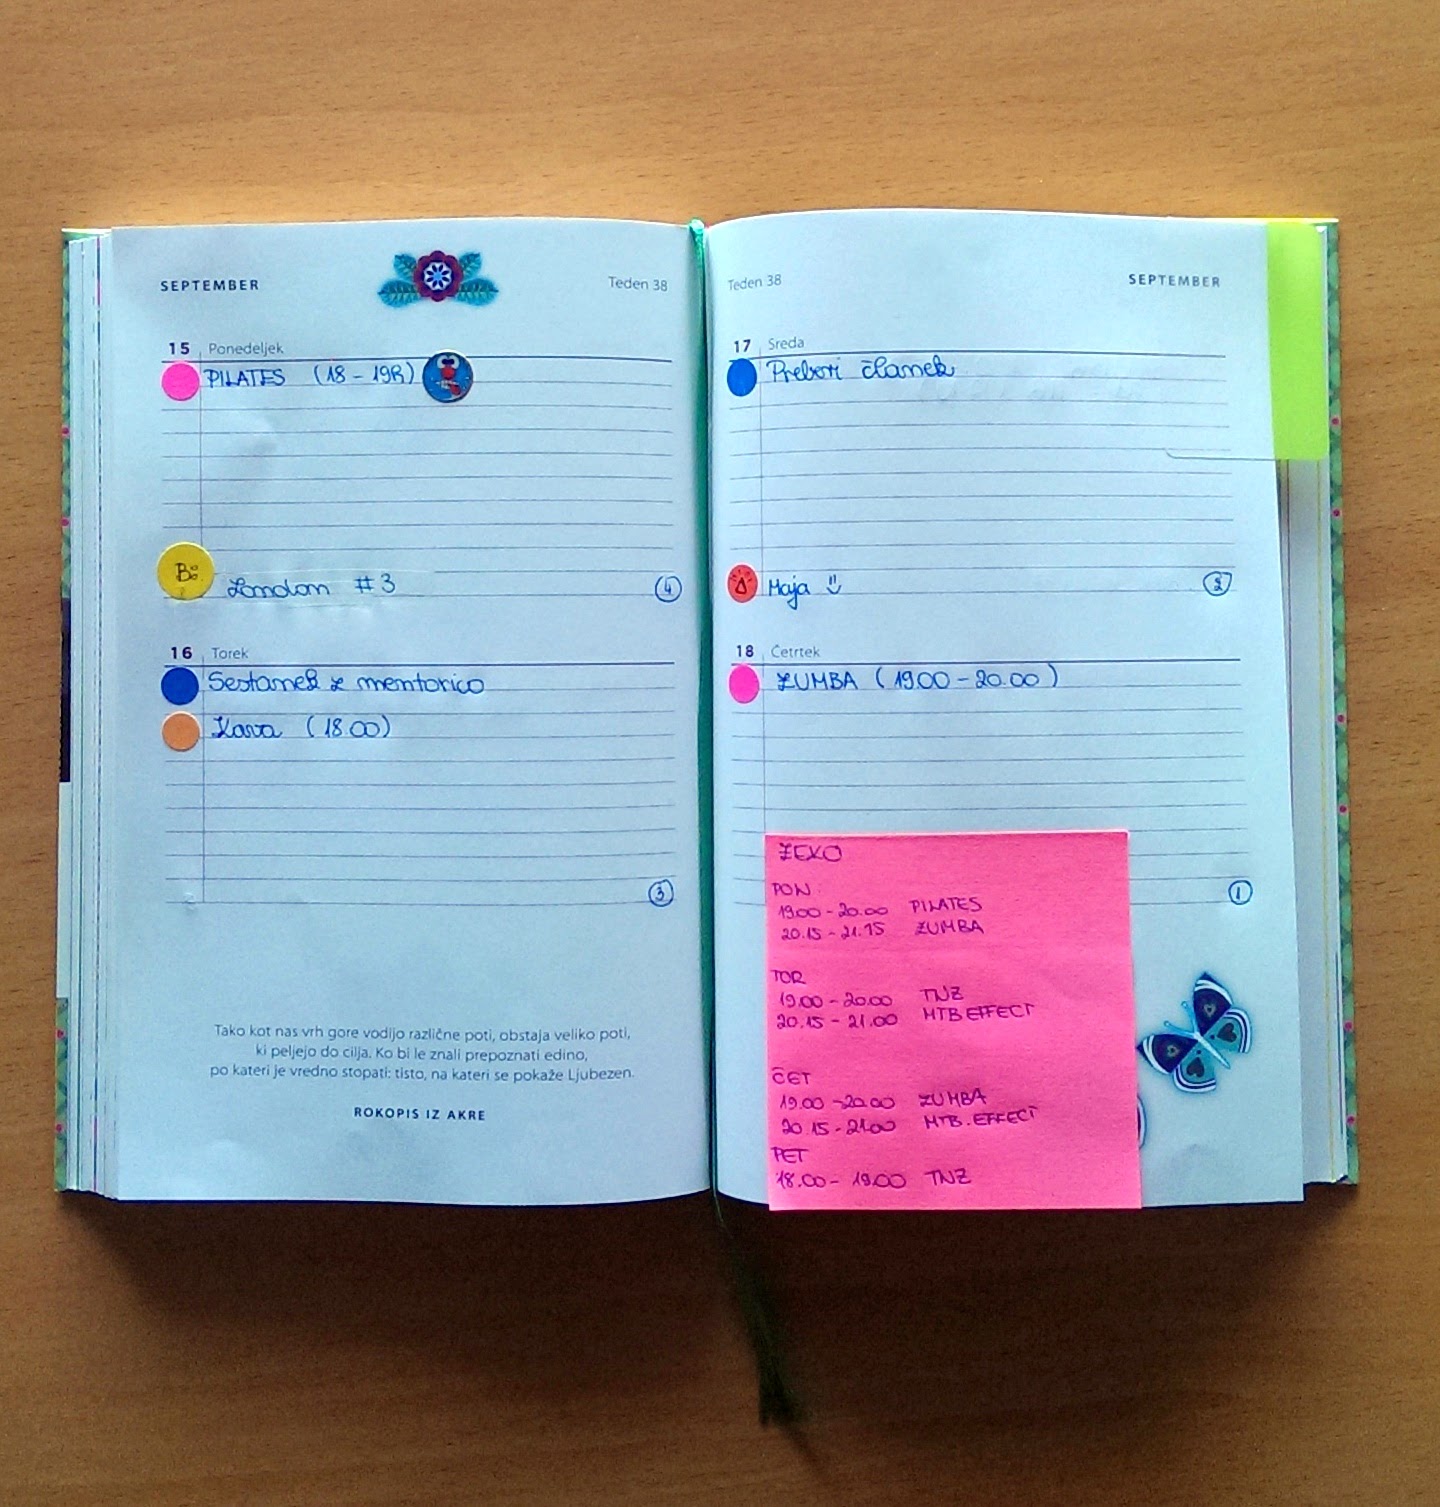 SEPTEMBER
Teden 38
15 Ponedeljek
PILATES (18 - 19h)
B:
London #3
4
16 Torek
Sestanek z mentorico
Kava (18.00)
3
Tako kot nas vrh gore vodijo različne poti, obstaja veliko poti,
ki peljejo do cilja. Ko bi le znali prepoznati edino,
po kateri je vredno stopati: tisto, na kateri se pokaže Ljubezen.
ROKOPIS IZ AKRE
Teden 38
SEPTEMBER
17 Sreda
Preberi članek
Maja
2
18 Četrtek
ZUMBA (19.00 - 20.00)
1
ŽEKO
PON:
19.00 - 20.00 PILATES
20.15 - 21.15 ZUMBA
TOR
19.00 - 20.00 TNZ
20.15 - 21.00 MTB EFFECT
ČET
19.00 - 20.00 ZUMBA
20.15 - 21.00 MTB. EFFECT
PET
18.00 - 19.00 TNZ